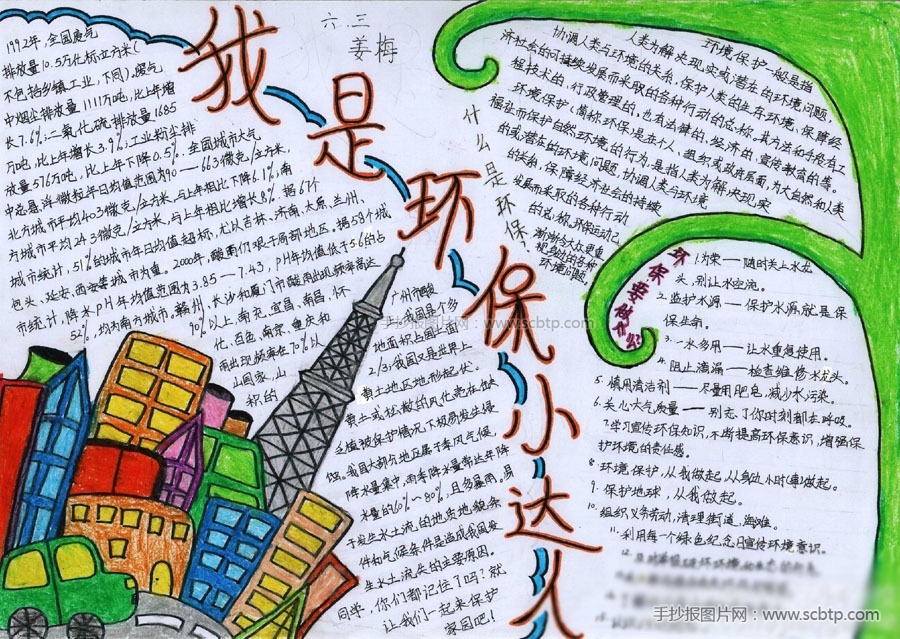 我是环保小达人
六.三
姜梅
1992年,全国废气
排放量10.5万亿标立方米(
不包括乡镇工业,下同)。废气
中烟尘排放量1111万吨,比上年增
长7.6%;二氧化硫排放量1685
万吨,比上年增长3.9%;工业粉尘排
放量576万吨,比上年下降0.5%。全国城市大气
中总悬浮微粒年日均值范围为90—663微克/立方米,
北方城市平均403微克/立方米,与上年相比下降6.1%,南
方城市平均243微克/立方米,与上年相比增长8%。据67个
城市统计,51%的城市年日均值超标,尤以吉林、济南、太原、兰州、
包头、延安、西安等城市为重。2000年,酸雨仍限于局部地区。据58个城
市统计,降水pH年均值范围为3.85—7.43,pH年均值低于5.6的占
52%,均为南方城市,赣州、长沙和厦门市酸雨出现频率高达
90%以上,南充、宜昌、南昌、怀
化、百色、南京、重庆和
广州市酸
雨出现频率在70%以
山国家,山
积的
全国是个多
地面积占国土面
2/3;我国又是世界上
黄土地区地形起伏。
黄土或松散的风化壳在缺
乏植被保护情况下极易发生侵
蚀。我国大部分地区属于季风气候,
降水量集中,雨季降水量常达年降
水量的60%~80%,且多暴雨。易
于发生水土流的地质地貌条
件和气候条件是造成我国发
生水土流失的主要原因。
同学,你们都记住了吗?就
让我们一起来保护
家园吧!
什么是环保?
环境保护一般是指
人类为解决现实或潜在的环境问题,
协调人类与环境的关系,保护人类的生存环境、保障经
济社会的可持续发展而采取的各种行动的总称。其方法和手段有工
程技术的、行政管理的,也有法律的、经济的、宣传教育的等。
环境保护(简称环保)是在个人、组织或政府层面,为大自然和人类
福祉而保护自然环境的行为,是指人类为解决现实
的或潜在的环境问题,协调人类与环境
的关系,保障经济社会的持续
发展而采取的各种行动
的总称。
环保要做什么
—随时关上水龙
头,别让水空流。
2.监护水源——保护水源就是保
保生命。
3.一水多用——让水重复使用。
4.阻止滴漏——检查维修水龙头。
5.慎用清洁剂——尽量用肥皂,减少水污染。
6.关心大气质量——别忘了你时刻都在呼吸
7.学习宣传环保知识,不断提高环保意识,增强保
护环境的责任感。
8.环境保护,从我做起,从身边小时事做起。
9.保护地球,从我做起。
10.组织义务劳动,清理街道、海滩。
11.利用每个绿色纪念日宣传环境意识。
手抄报图片网:www.scbtp.com
手抄报图片网:www.scbtp.com